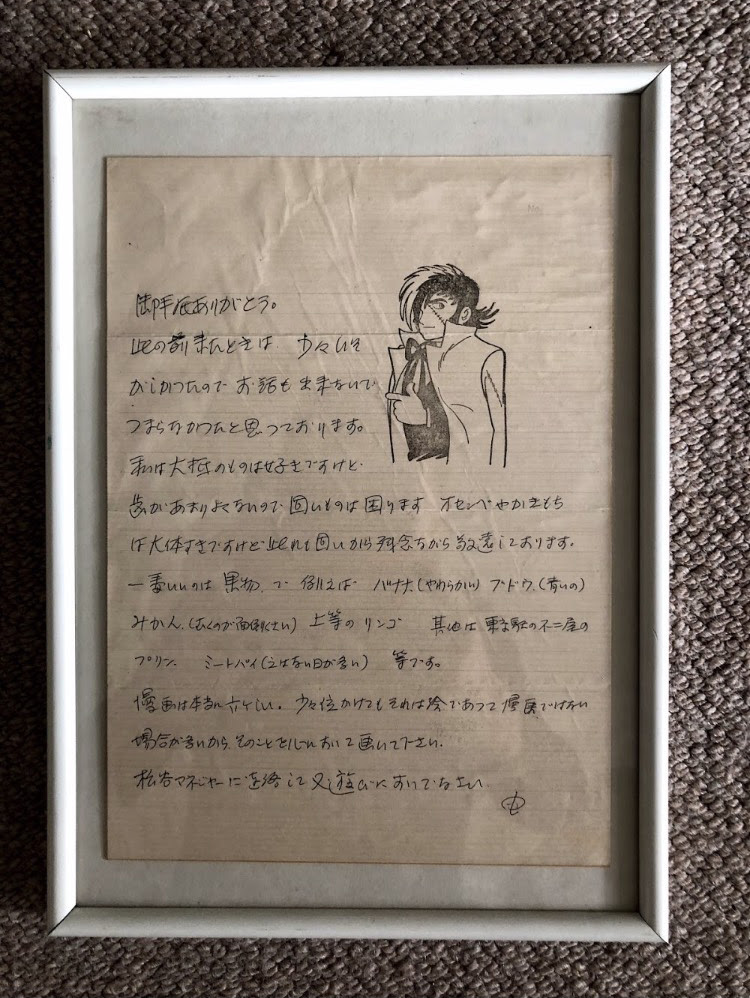 御手紙ありがとう。
此の前来たときは 少々いそ
がしかつたので お話も出来ないで
つまらなかつたと思つております。
私は大抵のものは好きですけど
歯があまりよくないので固いものは困ります オセンベやかきもち
は大体すきですけど此れも固いから残念ながら敬遠しております。
一番いいのは果物、で 例えば バナナ(やわらかい) ブドウ、(青いの)
みかん、(むくのが面倒くさい) 上等のリンゴ 其他は東京駅の不二屋の
プリン、 ミートパイ(之はない日が多い) 等です。
漫画は本当に六ケしい。少々位かけてもそれは絵であつて漫画ではない
場合が多いから、そのことを心において画いて下さい。
松谷マネジャーに連絡して又遊びにおいでなさい